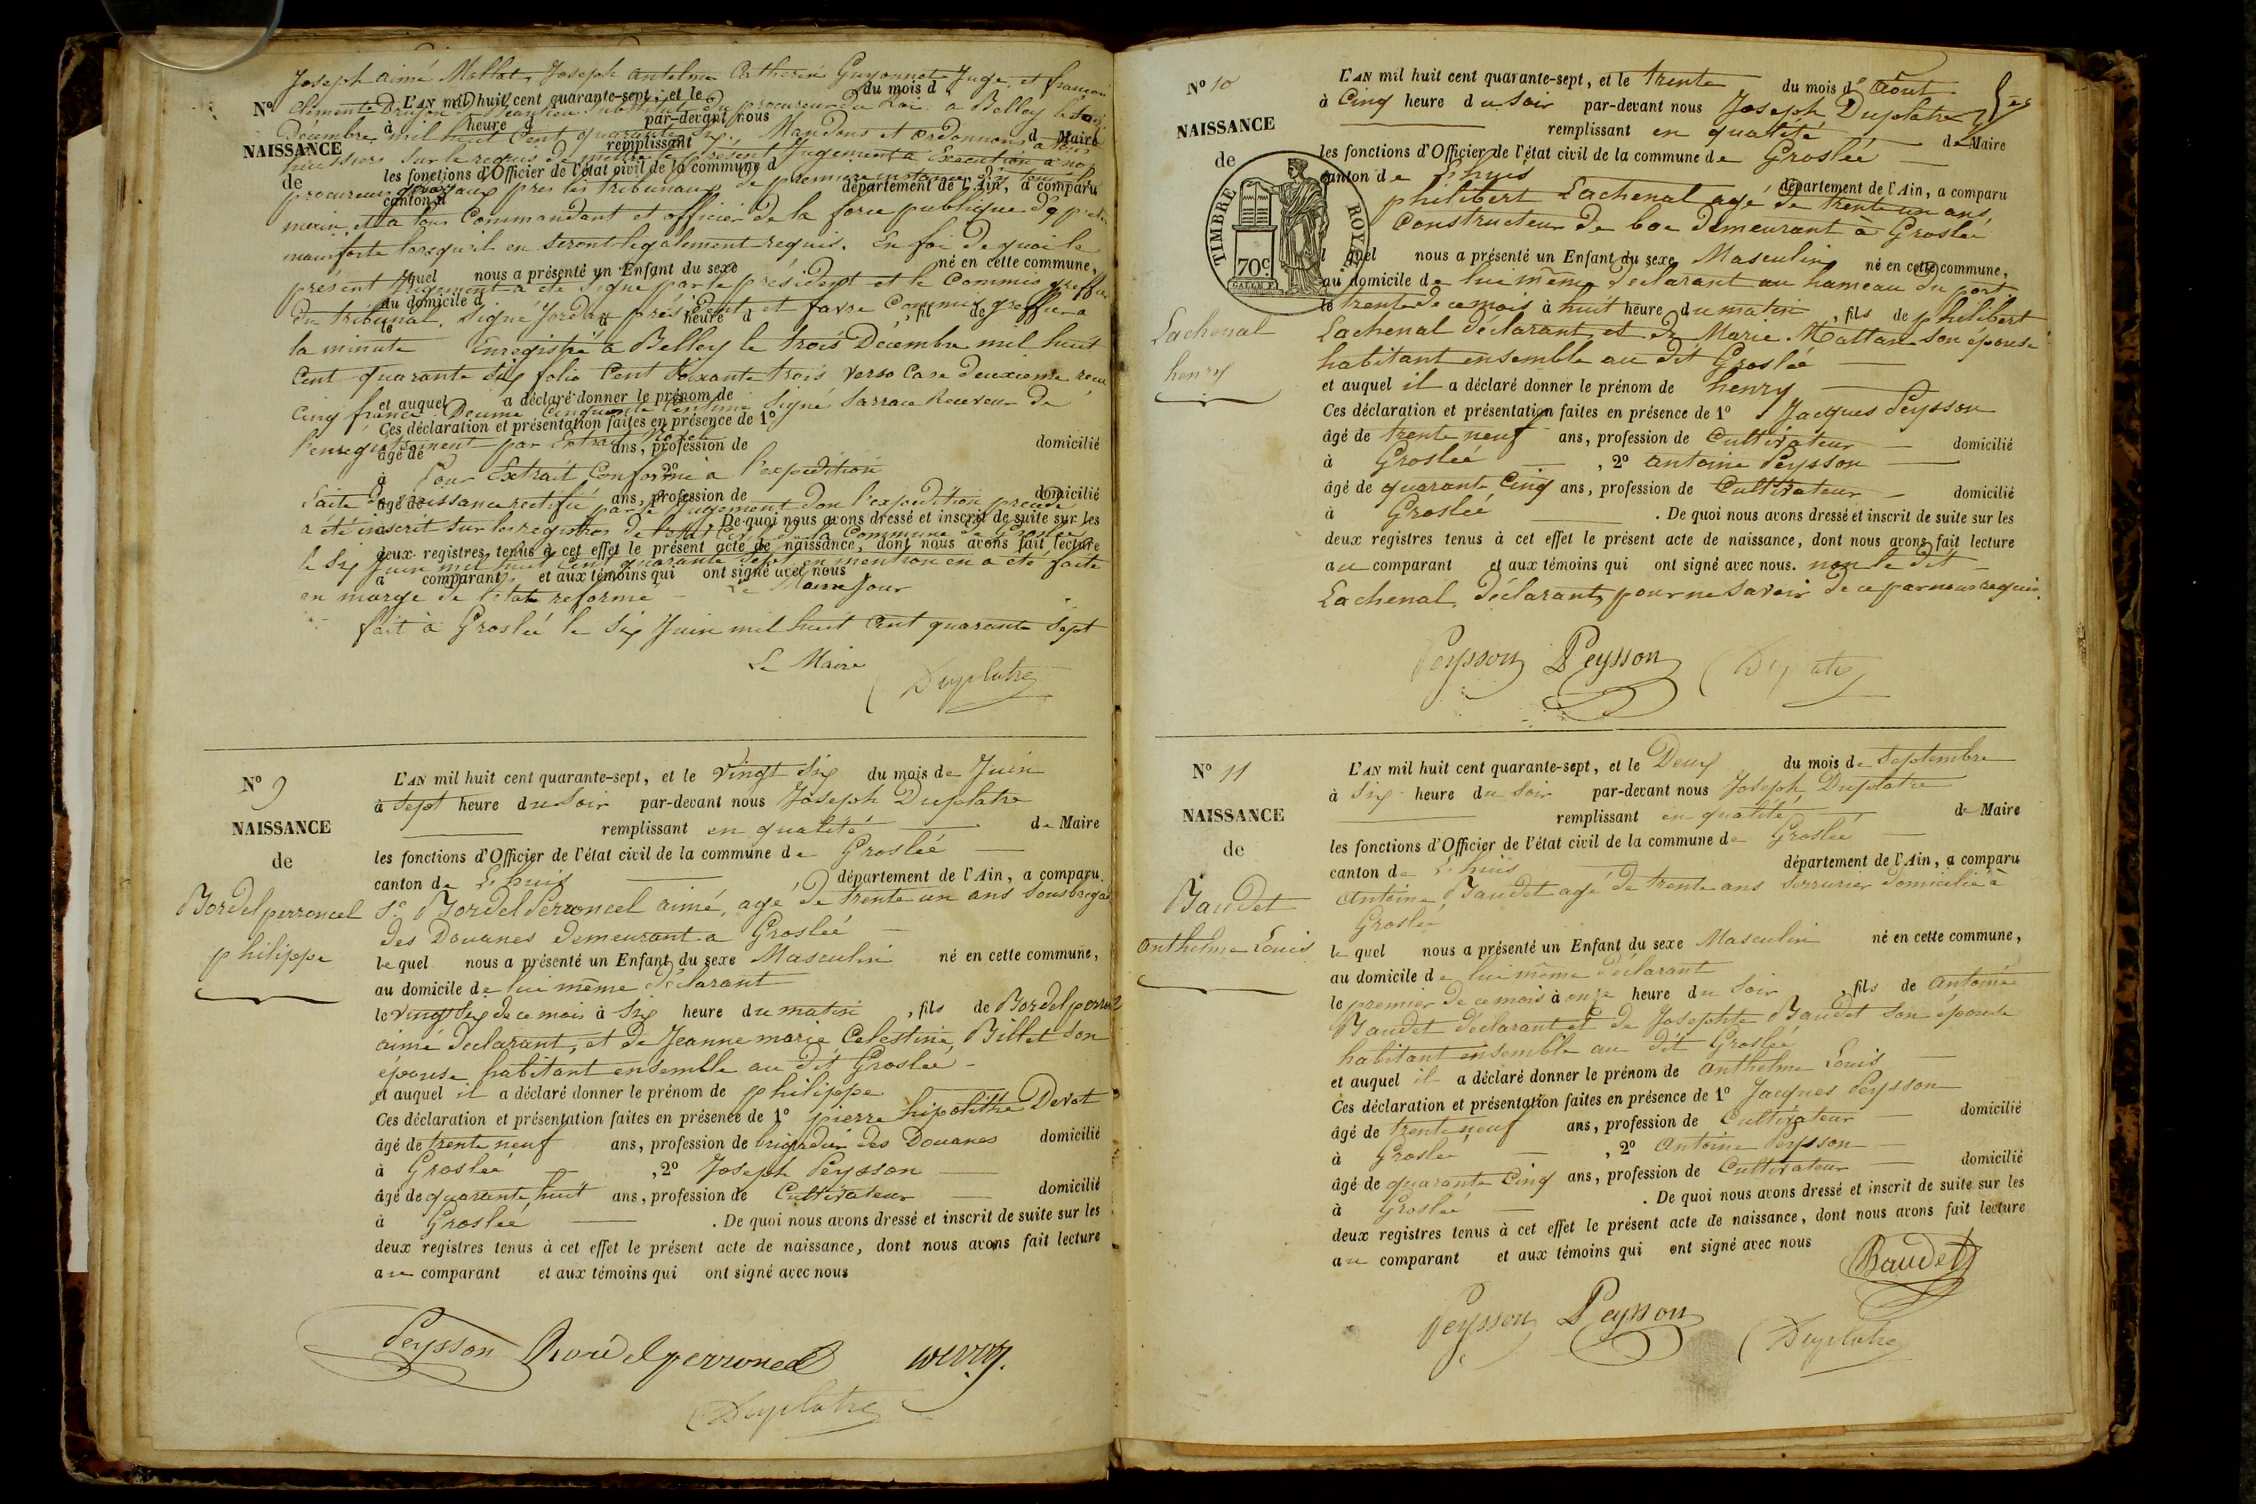 Joseph aimé Mollot, Joseph antelme Catherin Guyonnet Juge, et françois
N° L'AN mil huit cent quarante-sept, et le du mois d
Clément Dujon procureur du Roi a Belley le
à heure d par-devant nous
Decembre mil huit Cent quarante Six. Mandons et ordonnons a tous
remplissant d Maire
NAISSANCE
huissiers sur le requis de mettre le présent Jugement a Execution a nos
les fonctions d'Officier de l'état civil de la commune d
de
procureurs près les tribunaux de première instance
canton d département de l'Ain, a comparu
main, et a tous Commandant et officier de la force publique d'y preter
mainforte lorsqu'il en seront légalement requis. En foi de quoi le
quel nous a présenté un Enfant du sexe né en cette commune,
présent Jugement a été signé par le président et le Commis greffier
au domicile d
du tribunal. Signé Jordan président et favre Commis greffier a
le à heure d , fil de
la minute Enregistré a Belley le trois Décembre mil huit
Cent quarante Six folio Cent Soixante trois verso Case deuxieme reçu
et auquel a déclaré donner le prénom de
Cinq francs Decime Cinquante Centime Signé Sarrau Receveur de
Ces déclaration et présentation faites en présence de 1°
l'enregistrement par Extrait
âgé de ans, profession de domicilié
à 2°
Pour Extrait Conforme a l'expédition
âgé de ans, profession de domicilié
l'acte de naissance rectifié par le Jugement don l'expedition précede
De quoi nous avons dressé et inscrit de suite sur les
a été inscrit sur les registres de l'état Civil de la Commune de Groslée
deux registres tenus à cet effet le présent acte de naissance, dont nous avons fait lecture
le Six Juin mil huit Cent quarante Sept en mention en a été faite
a comparant et aux témoins qui ont signé avec nous
en marge de l'état reformé Le Maire
fait a Groslée le Six Juin mil huit Cent quarante Sept
Le Maire
Duplatre
N° 9
L'AN mil huit cent quarante-sept, et le vingt Six du mois de Juin
à Sept heure du Soir par-devant nous Joseph Duplatre
NAISSANCE
remplissant en qualité de Maire
de
les fonctions d'Officier de l'état civil de la commune de Groslée
canton de L'huis département de l'Ain, a comparu
Bordelperroncel
Sr Bordel Perroncel aimé, agé de trente un ans Sousbrigad
des Douanes demeurant a Groslée
philippe
le quel nous a présenté un Enfant du sexe Masculin né en cette commune,
au domicile de lui même déclarant
le vingt Six de ce mois à Six heure du matin , fils de Bordelperroncel
aimé declarant, et de Jeanne marie Celestine Billet son
épouse habitant ensemble au dit Groslée
et auquel il a déclaré donner le prénom de philippe
Ces déclaration et présentation faites en présence de 1° pierre hipolithe Devot
âgé de trente neuf ans, profession de brigadier des Douanes domicilié
à Groslée , 2° Joseph Peysson
âgé de quarante huit ans, profession de Cultivateur domicilié
à Groslée . De quoi nous avons dressé et inscrit de suite sur les
deux registres tenus à cet effet le présent acte de naissance, dont nous avons fait lecture
au comparant et aux témoins qui ont signé avec nous
Peysson Bordelperroncel
Duplatre
N° 10
L'AN mil huit cent quarante-sept, et le trente du mois d'Août
à Cinq heure du Soir par-devant nous Joseph Duplatre
NAISSANCE
remplissant en qualité de Maire
de
les fonctions d'Officier de l'état civil de la commune de Groslée
canton de L'huis département de l'Ain, a comparu
TIMBRE ROYAL
70c
philibert Lachenal agé de trente un ans,
Constructeur de bac demeurant à Groslée
l quel nous a présenté un Enfant du sexe Masculin né en cette commune,
au domicile de lui même declarant au hameau du port
le trente de ce mois à huit heure du matin , fils de philibert
Lachenal
Lachenal déclarant, et de Marie Mattan son épouse
habitant ensemble au dit Groslée
henry
et auquel il a déclaré donner le prénom de henry
Ces déclaration et présentation faites en présence de 1° Jacques Peysson
âgé de trente neuf ans, profession de Cultivateur domicilié
à Groslée , 2° antoine Peysson
âgé de quarante Cinq ans, profession de Cultivateur domicilié
à Groslée . De quoi nous avons dressé et inscrit de suite sur les
deux registres tenus à cet effet le présent acte de naissance, dont nous avons fait lecture
au comparant et aux témoins qui ont signé avec nous. non le dit
Lachenal déclarant, pour ne savoir de ce par nous requis.
Peysson Peysson Duplatre
N° 11
L'AN mil huit cent quarante-sept, et le Deux du mois de Septembre
à Six heure du Soir par-devant nous Joseph Duplatre
NAISSANCE
remplissant en qualité de Maire
de
les fonctions d'Officier de l'état civil de la commune de Groslée
canton de L'huis département de l'Ain, a comparu
Baudet
Antoine Baudet agé de trente ans Serrurier domicilié à
Groslée
anthelme Louis
le quel nous a présenté un Enfant du sexe Masculin né en cette commune,
au domicile de lui même déclarant
le premier de ce mois à onze heure du Soir , fils de Antoine
Baudet déclarant et de Josephte Baudet son épouse
habitant ensemble au dit Groslée
et auquel il a déclaré donner le prénom de anthelme Louis
Ces déclaration et présentation faites en présence de 1° Jacques Peysson
âgé de trente neuf ans, profession de Cultivateur domicilié
à Groslée , 2° Antoine Peysson
âgé de quarante Cinq ans, profession de Cultivateur domicilié
à Groslée . De quoi nous avons dressé et inscrit de suite sur les
deux registres tenus à cet effet le présent acte de naissance, dont nous avons fait lecture
au comparant et aux témoins qui ont signé avec nous
Baudet
Peysson Peysson
Duplatre